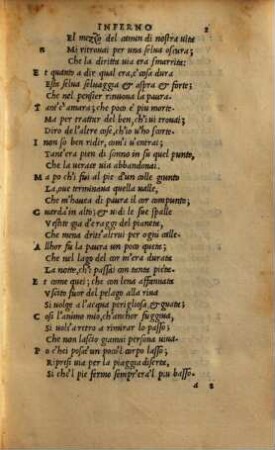 INFERNO 2
El mezzo del camin di nostra uita
N Mi ritrouai per una selua oscura;
Che la diritta uia era smarrita:
E t quanto a dir qual era, è cosa dura
Esta selua seluaggia & aspra & forte;
Che nel pensier rinoua la paura.
T ant'è amara; che poco è piu morte.
Ma per trattar del ben, ch'i ui trouai;
Diro de l'altre cose, ch'io u'ho scorte.
I non so ben ridir, com'i u'entrai;
Tant'era pien di sonno in su quel punto,
Che la uerace uia abbandonai.
M a po ch'i fui al pie d'un colle giunto
La, oue terminaua quella ualle,
Che m'hauea di paura il cor compunto;
G uarda'in alto; & uidi le sue spalle
Vestite gia d'e raggi del pianeta,
Che mena dritt'altrui per ogni calle.
A llhor fu la paura un poco queta;
Che nel lago del cor m'era durata
La notte, ch'i passai con tanta pieta.
E t come quei; che con lena affannata
Vscito fuor del pelago alla riua
Si uolge a l'acqua perigliosa, & guata;
C osi l'animo mio, ch'anchor fuggiua,
Si uols'a retro a rimirar lo passo;
Che non lascio giamai persona uiua.
P o c'hei posat'un poco'l corpo lasso;
Ripresi uia per la piaggia diserta,
Si che'l pie fermo sempr'era'l piu basso.
a 2